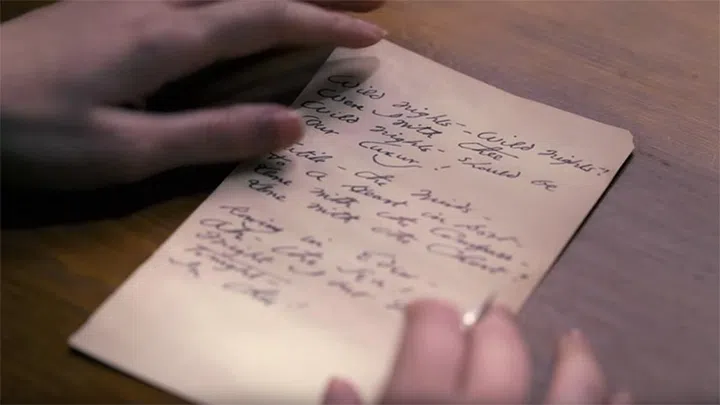 Wild nights - Wild nights!
Were I with thee
Wild nights should be
Our luxury!
Futile - the winds -
To a Heart in port -
Done with the Compass -
Done with the Chart!
Rowing in Eden -
Ah - the Sea!
Might I but
Tonight -
In thee!